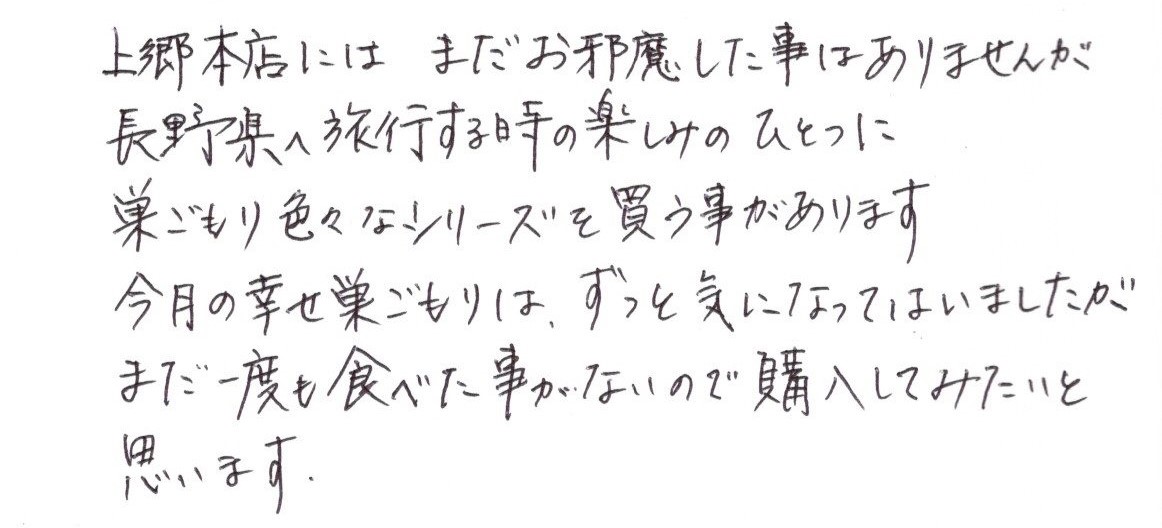 上郷本店には まだお邪魔した事はありませんが
長野県へ旅行する時の楽しみのひとつに
巣ごもり色々なシリーズを買う事があります
今月の幸せ巣ごもりは、ずっと気になってはいましたが
まだ一度も食べた事がないので購入してみたいと
思います.